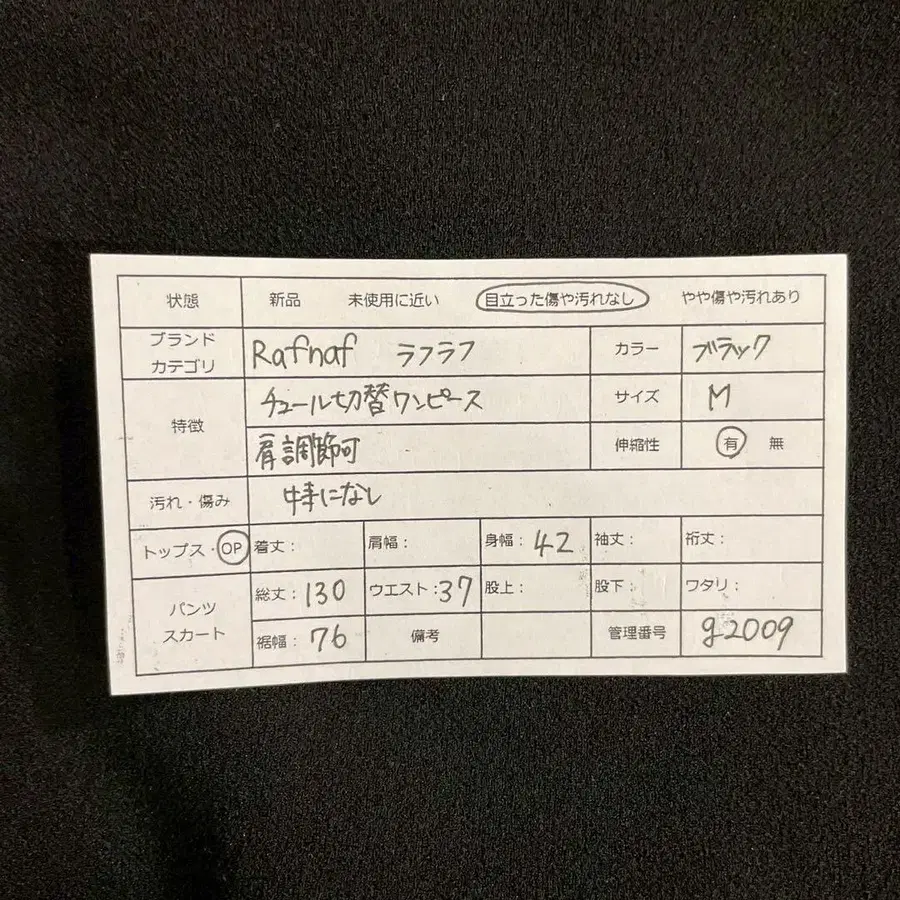 状態 新品 未使用に近い 目立った傷や汚れなし やや傷や汚れあり
ブランド カテゴリ Rafnaf ラフラフ カラー ブラック
特徴 チュール切替ワンピース サイズ M
肩調節可 伸縮性 有 無
汚れ・傷み 特になし
トップス・OP 着丈： 肩幅： 身幅：42 袖丈： 裄丈：
パンツ スカート 総丈：130 ウエスト：37 股上： 股下： ワタリ：
裾幅：76 備考 管理番号 g2009